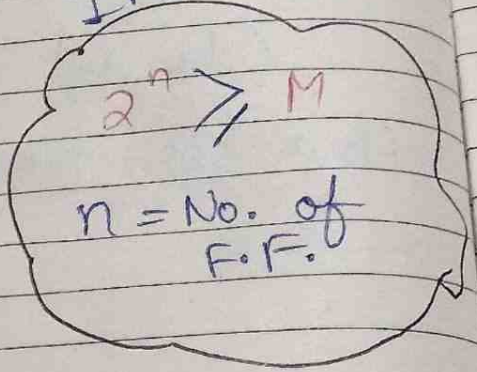 2ⁿ ⩾ M
n = No. of
F.F.